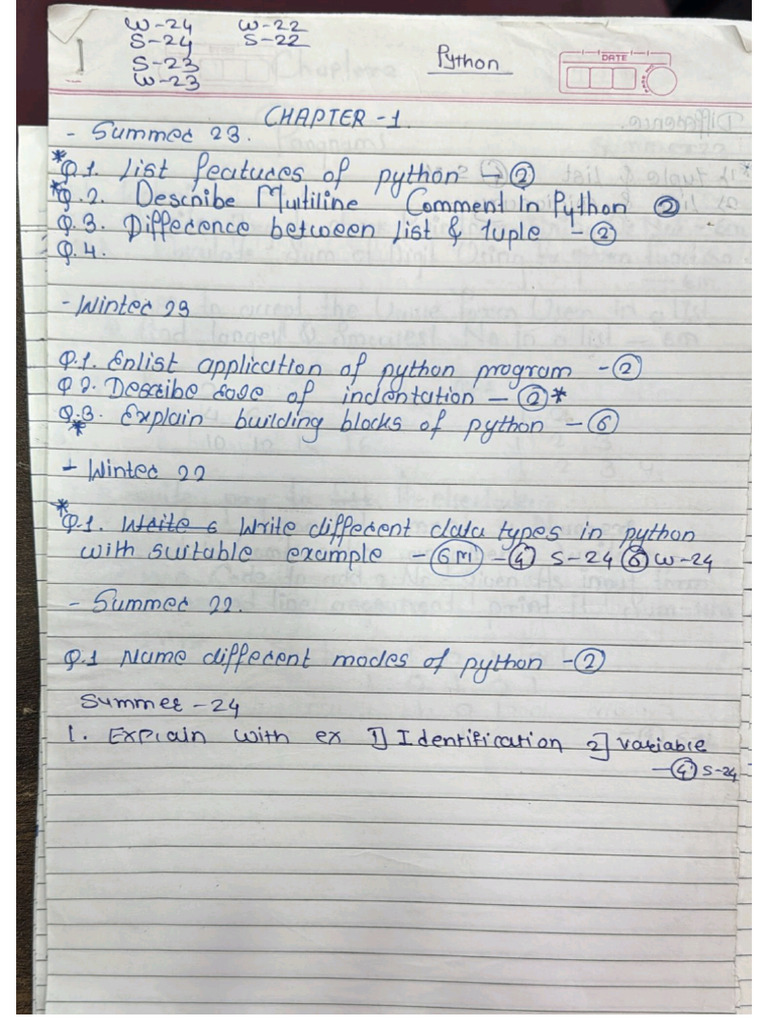 W-24 W-22
S-24 S-22
S-23
W-23
1
Python
DATE
CHAPTER -1.
- Summer 23.
*Q.1. List features of python → ②
*Q.2. Describe Multiline Comment In Python ②
Q.3. Difference between List & tuple - ②
Q.4.
- Winter 23
Q.1. Enlist application of python program - ②
Q 2. Describe role of indentation - ② *
Q.3. Explain building blocks of python - ⑥
*
- Winter 22
*
Q.1. Write 6 Write different data types in python
with suitable example - 6M - ④ S-24 ⑥ W-24
- Summer 22.
Q.1 Name different modes of python - ②
Summer - 24
1. Explain with ex 1] Identification 2] Variable
- ④ S-24